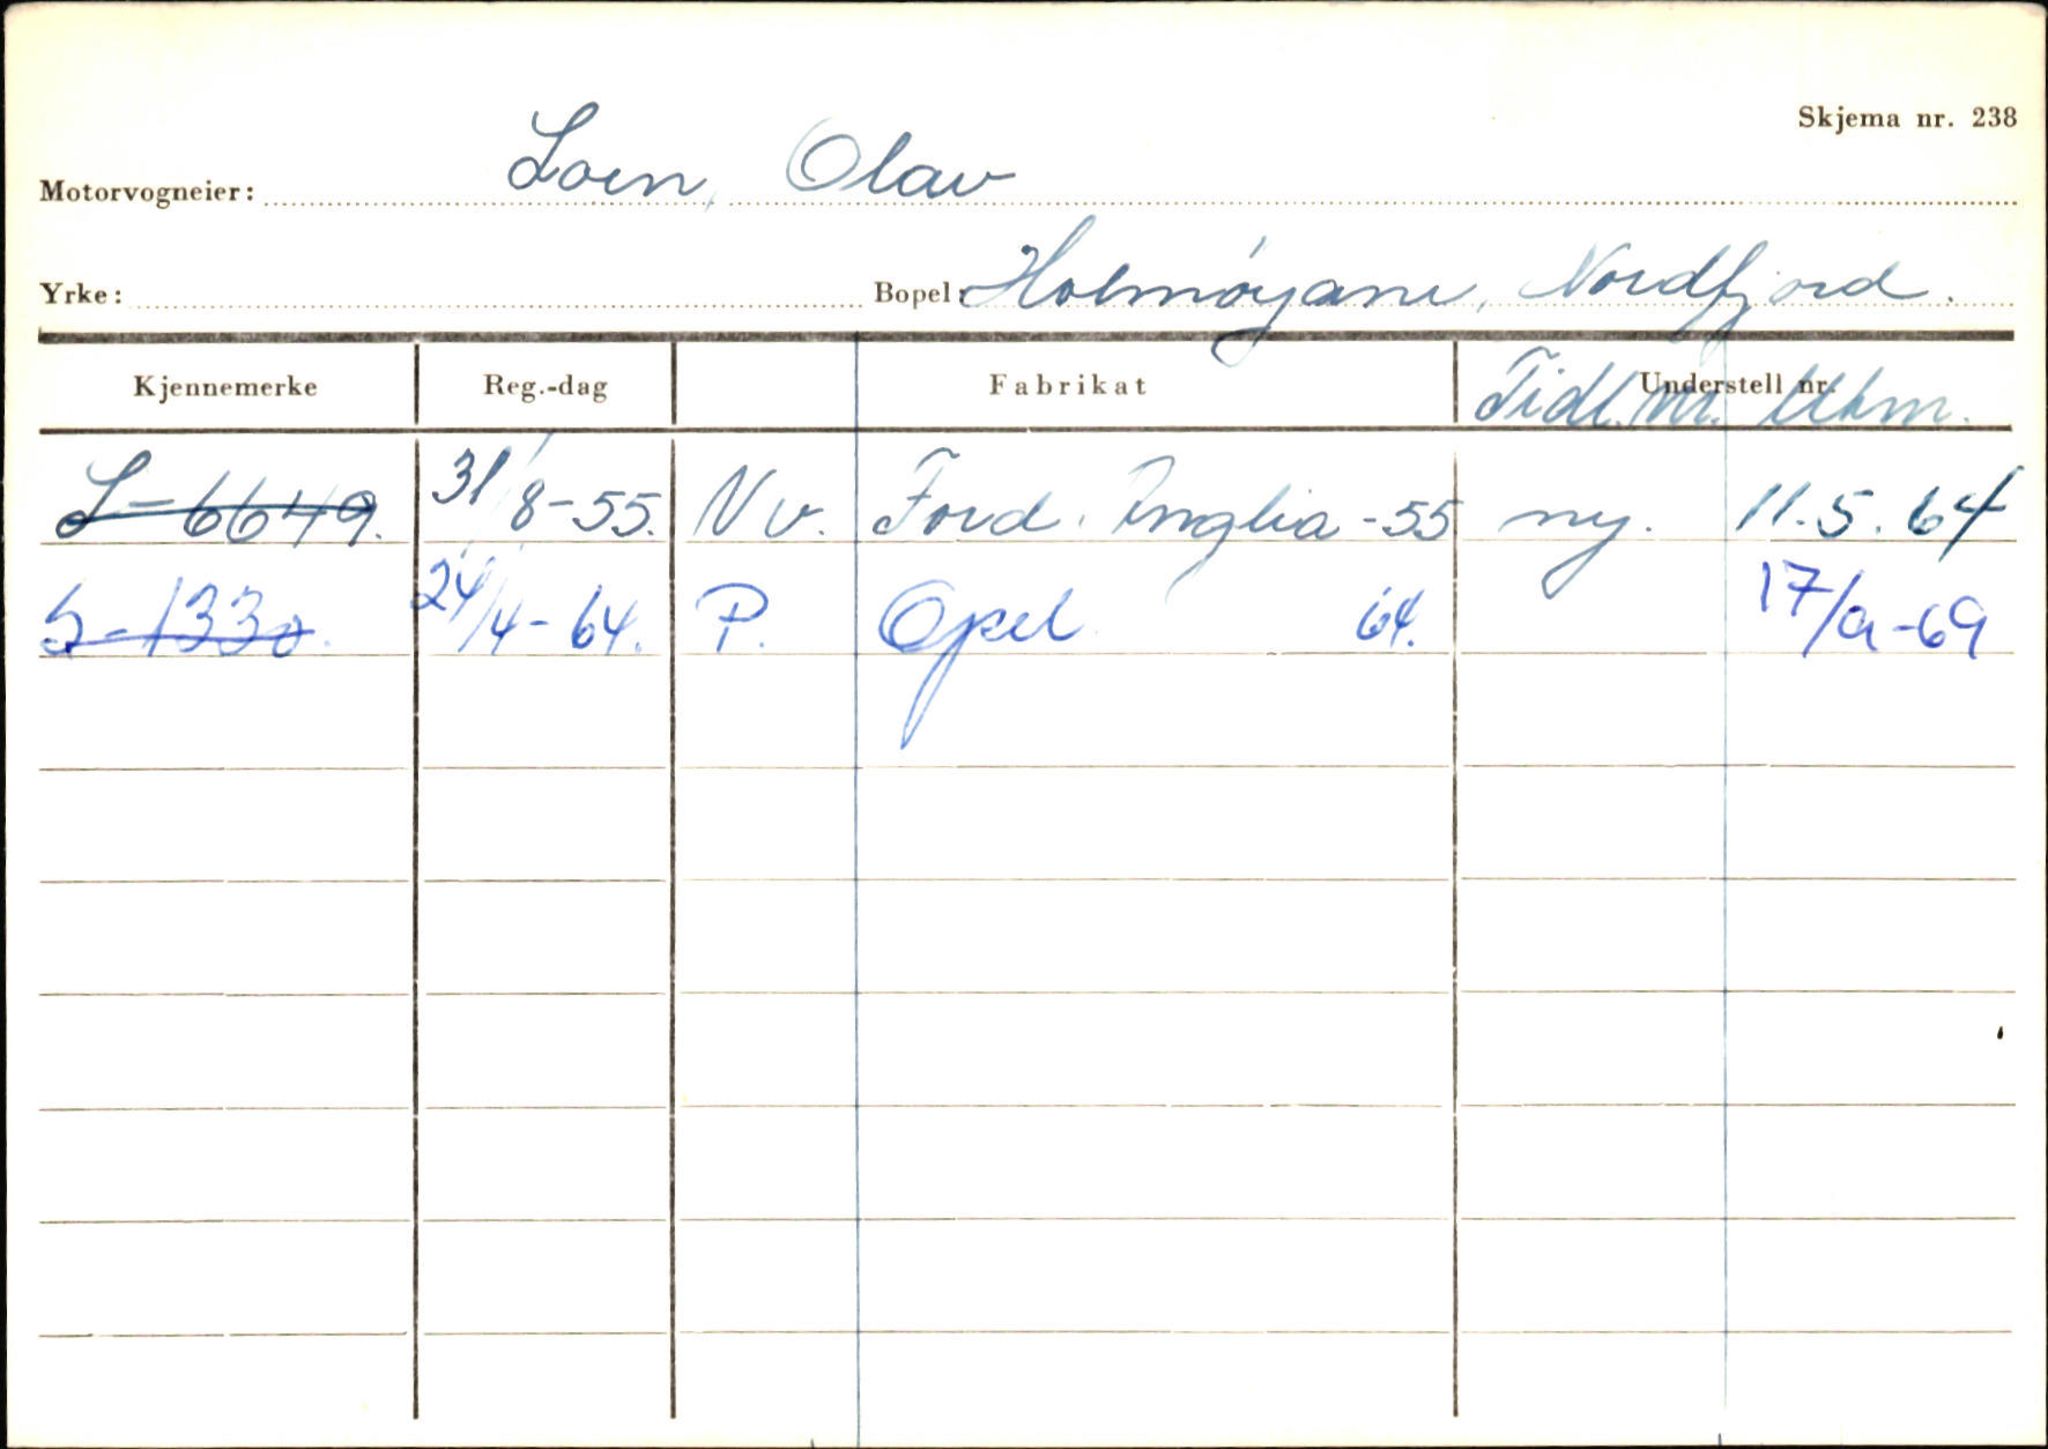 Skjema nr. 238
Motorvogneier: Loen, Olav
Yrke: Bopel: Holmøyane, Nordfjord.
Kjennemerke Reg.-dag Fabrikat Understell nr. Tidl. nr. Utm.
S-6649. 31/8-55. Nv. Ford. Anglia -55 ny. 11.5.64
S-1330. 24/4-64. P. Opel 64. 17/9-69